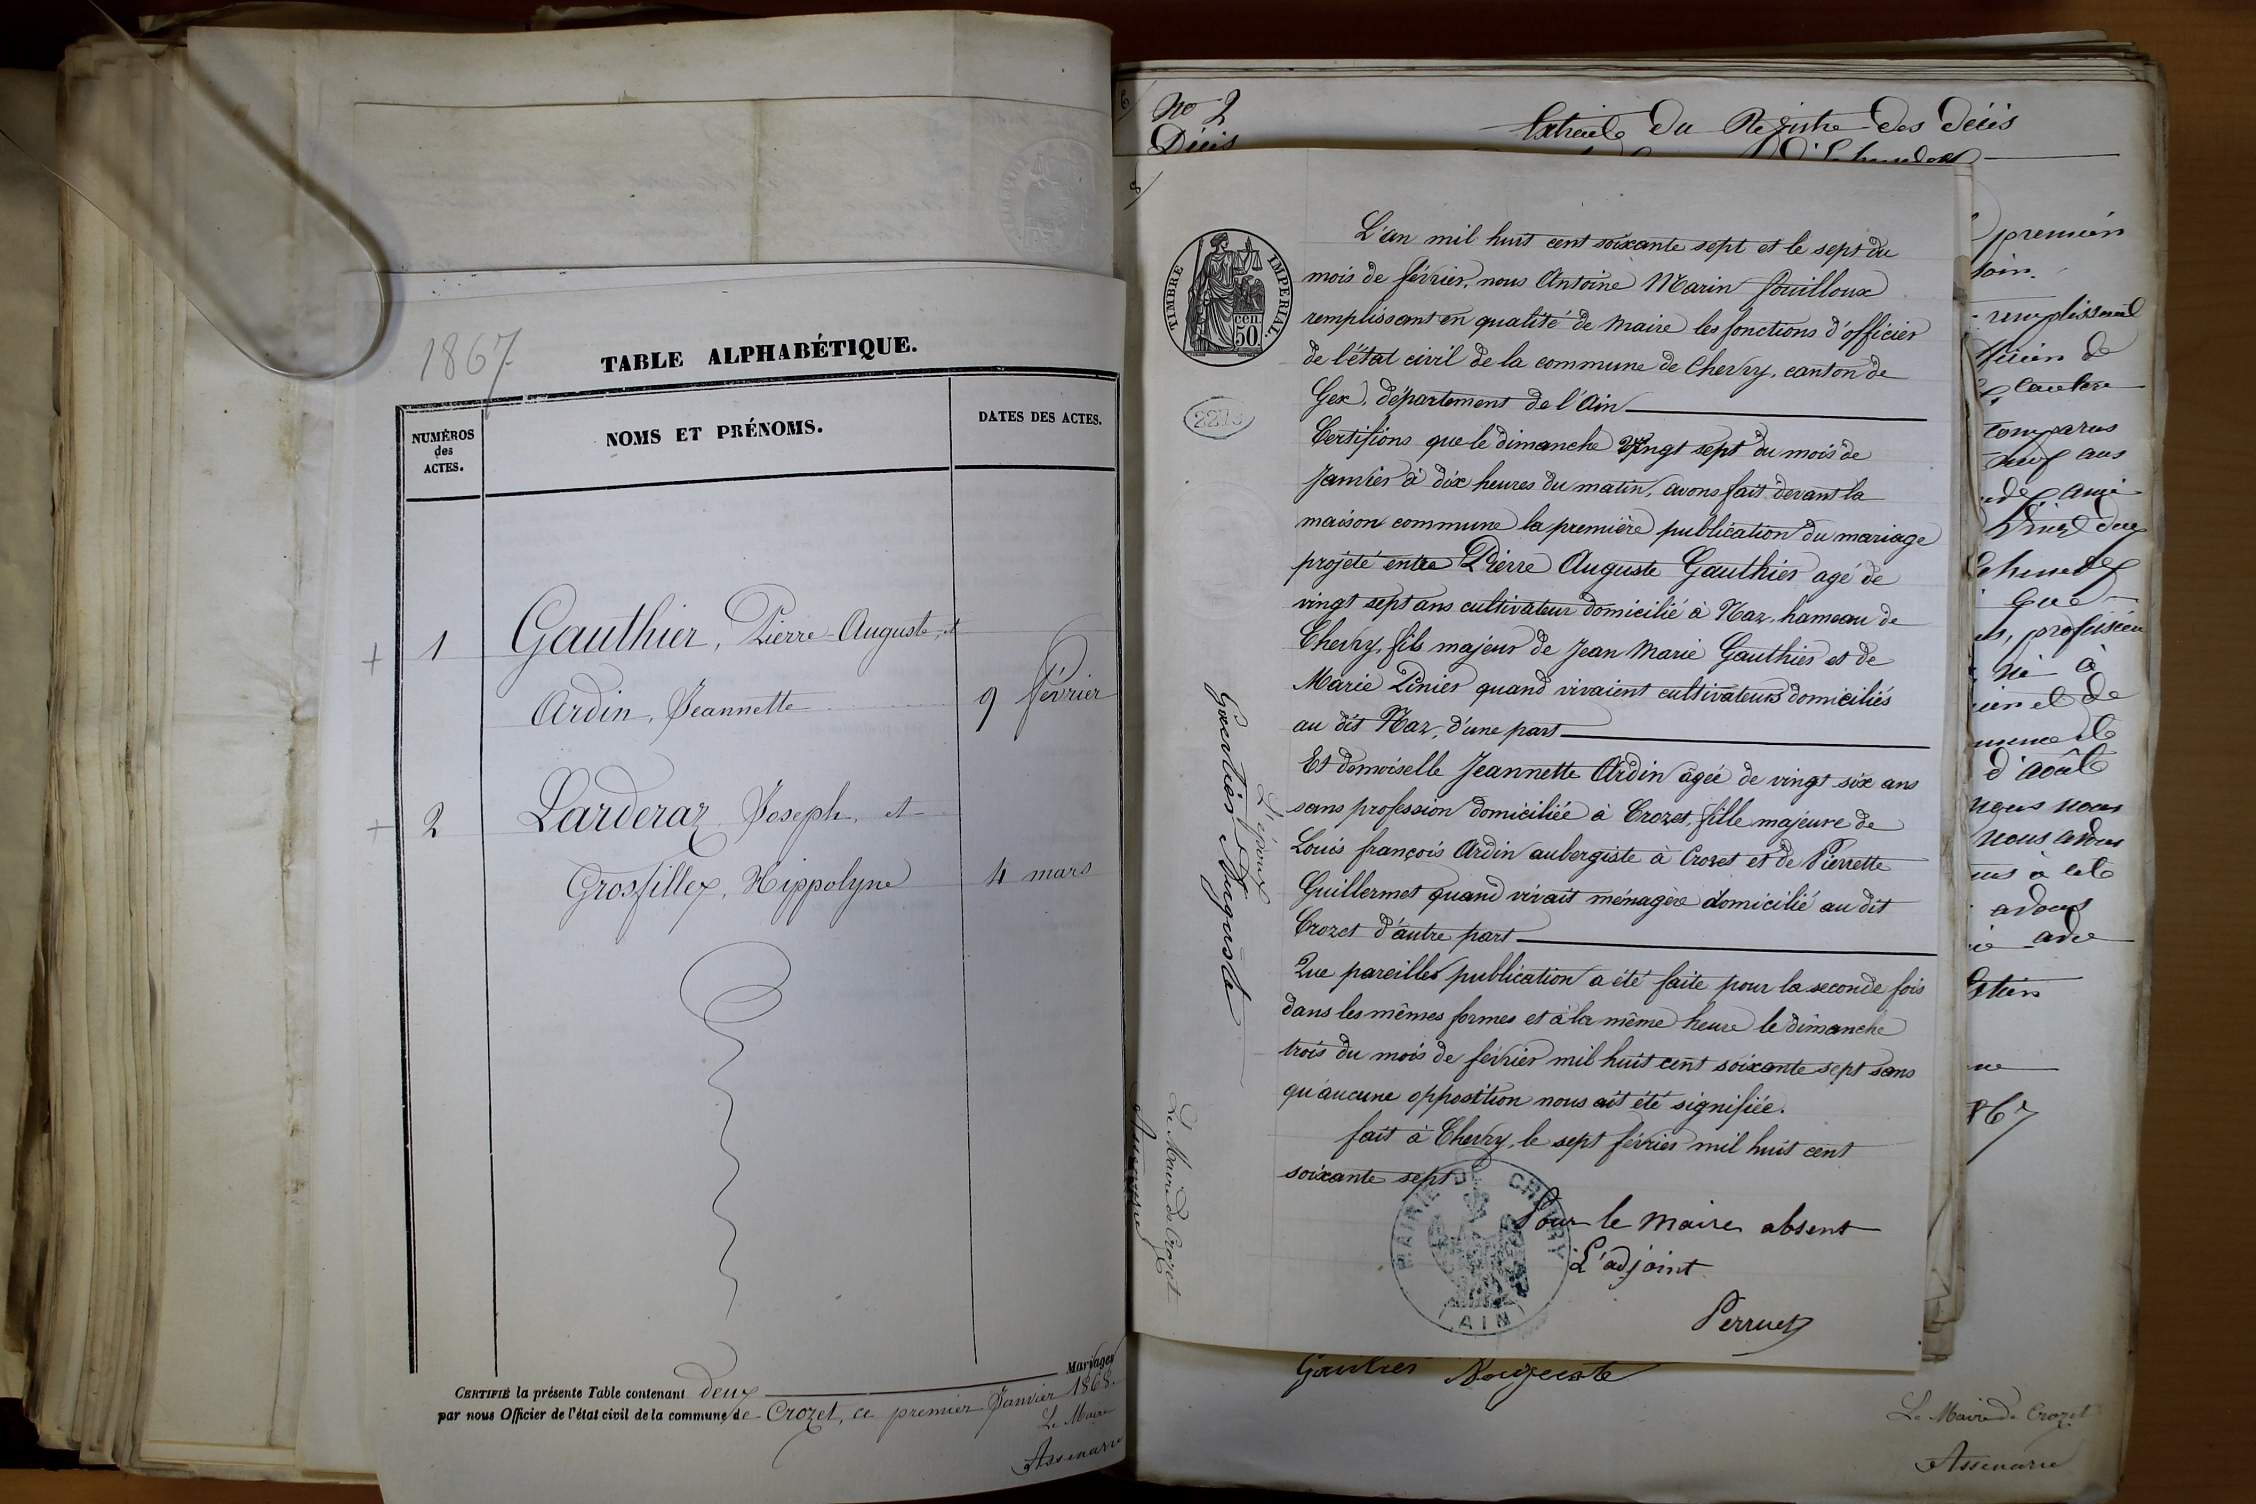 1867
TABLE ALPHABÉTIQUE.
NUMÉROS des ACTES.
NOMS ET PRÉNOMS.
DATES DES ACTES.
1 Gauthier, Pierre-Auguste, et
Ardin, Jeannette 9 février
2 Larderaz Joseph, et
Grosfilley, Hippolyne 4 mars
CERTIFIÉ la présente Table contenant deux Mariages
par nous Officier de l'état civil de la commune de Crozet, ce premier Janvier 1868.
Le Maire
Assenare
No 2
Décès
Extrait du Registre des Décès
TIMBRE IMPERIAL.
cen. 50
L'an mil huit cent soixante sept et le sept du
mois de février, nous Antoine Marin Fouilloux
remplissant en qualité de maire les fonctions d'officier
de l'état civil de la commune de Chevry, canton de
Gex, département de l'Ain
Certifions que le dimanche vingt sept du mois de
Janvier à dix heures du matin, avons fait devant la
maison commune la première publication du mariage
projeté entre Pierre Auguste Gauthier agé de
vingt sept ans cultivateur domicilié à Naz, hameau de
Chevry, fils majeur de Jean Marie Gauthier et de
Marie Pinier quand vivaient cultivateurs domiciliés
au dit Naz, d'une part
Et demoiselle Jeannette Ardin âgée de vingt six ans
sans profession domiciliée à Crozet, fille majeure de
Louis françois Ardin aubergiste à Crozet et de Pierrette
Guillermet quand vivait ménagère domicilié au dit
Crozet d'autre part
Que pareilles publication a été faite pour la seconde fois
dans les mêmes formes et à la même heure le dimanche
trois du mois de février mil huit cent soixante sept sans
qu'aucune opposition nous ait été signifiée.
fait à Chevry, le sept février mil huit cent
soixante sept
Pour le maire absent
L'adjoint
Perruet
MAIRIE DE CHEVRY
(AIN)
L'époux
Le Maire de Crozet
Assenare
premier
remplissant
d'août
Le Maire de Crozet
Assenare